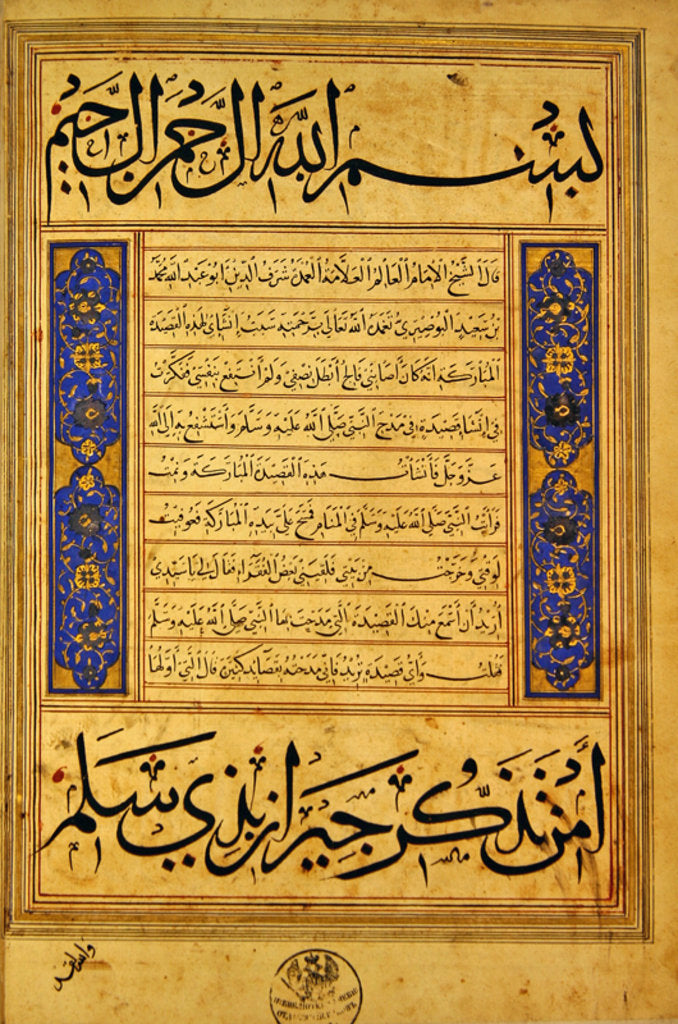 بسم الله الرحمن الرحيم
قال الشيخ الامام العالم العلامة العمدة شرف الدين ابو عبد الله محمد
بن سعيد البوصيري تغمده الله تعالى برحمته سبب إنشائي لهذه القصيدة
المباركة انه كان أصابني فالج أبطل نصفي ولم أنتفع بنفسي ففكرت
في إنشاء قصيدة في مدح النبي صلى الله عليه وسلم وأستشفع به إلى الله
عز وجل فأنشات هذه القصيدة المباركة ونمت
فرأيت النبي صلى الله عليه وسلم في المنام فمسح علي بيده المباركة فعوفيت
لوقتي وخرجت من بيتي فلقيني بعض الفقراء فقال لي يا سيدي
أريد أن أسمع منك القصيدة التي مدحت بها النبي صلى الله عليه وسلم
فقلت وأي قصيدة تريد فإني مدحته بقصائد كثيرة قال التي أولها
أمن تذكر جيران بذي سلم